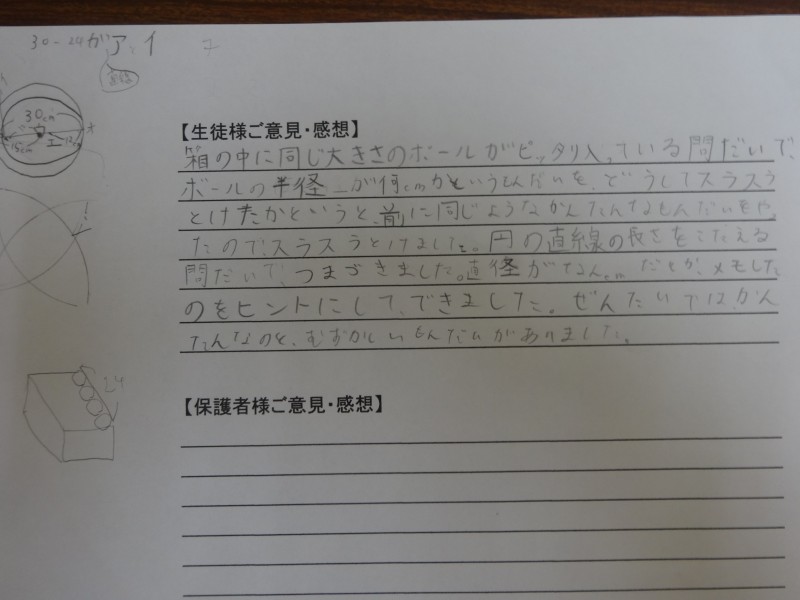 30-24がアとイ
直径
30cm
15cm
12cm
【生徒様ご意見・感想】
箱の中に同じ大きさのボールがピッタリ入っている問だいで、
ボールの半径が何cmかというもんだいを、どうしてスラスラ
とけたかというと、前に同じようなかんたんなもんだいをや
たのでスラスラとけました。円の直線の長さをこたえる
問だいで、つまづきました。直径がなんcmだとか、メモした
のをヒントにして、できました。ぜんたいでは、かん
たんなのと、むずかしいもんだいがありました。
24
【保護者様ご意見・感想】